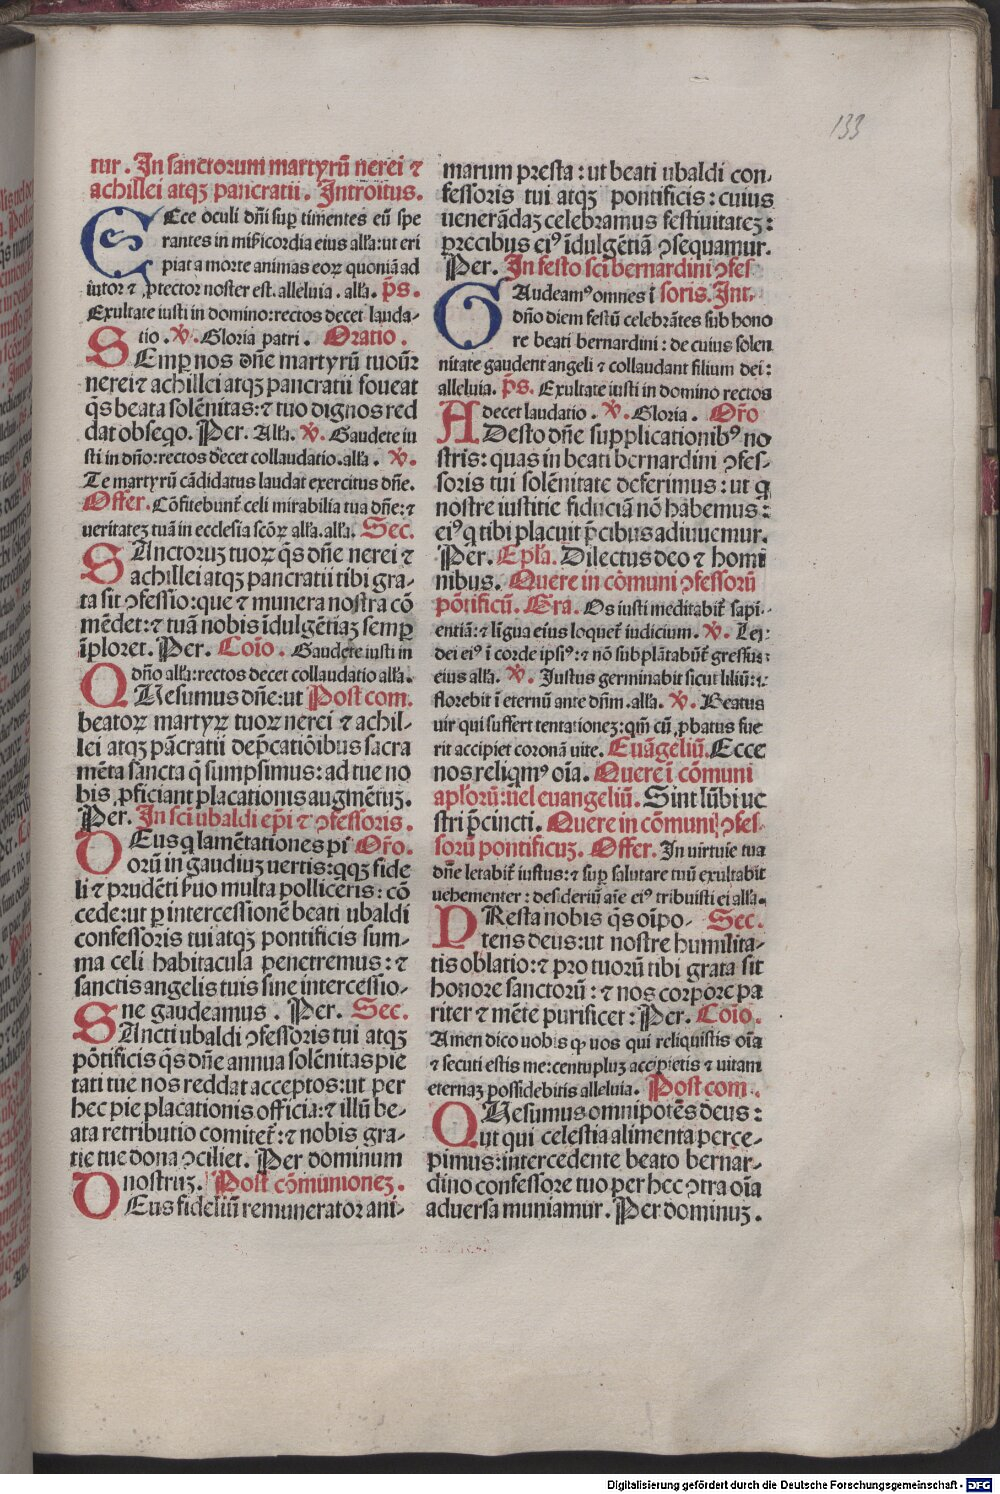 133
tur. In sanctorum martyrũ nerei ⁊
achillei atqꝫ pancratii. Introitus.
ECce oculi dñi suꝑ timentes eũ spe
rantes in mĩsericordia eius alľa: ut eri
piat a morte animas eoꝝ quoniã ad
iutor ⁊ ꝓtector noster est. alleluia. alľa. p̃s.
Exultate iusti in domino: rectos decet lauda-
tio. ℣. Gloria patri. Oratio.
SEmꝑ nos dñe martyrũ tuoꝝ
nerei ⁊ achillei atqꝫ pancratii foueat
q̃s beata solẽnitas: ⁊ tuo dignos red
dat obseqo. Per. Alľa. ℣. Gaudete iu
sti in dño: rectos decet collaudatio. alľa. ℣.
Te martyrũ cãdidatus laudat exercitus dñe.
Offer. Cõfitebunt̃ celi mirabilia tua dñe: ⁊
veritateꝫ tuã in ecclesia scõꝝ alľa. alľa. Sec.
SAnctoruꝫ tuoꝝ q̃s dñe nerei ⁊
achillei atqꝫ pancratii tibi gra-
ta sit ꝯfessio: que ⁊ munera nostra cõ
mẽdet: ⁊ tuã nobis ĩdulgẽtiaꝫ semꝑ
ĩploret. Per. Coĩo. Gaudete iusti in
dño alľa: rectos decet collaudatio alľa.
QUesumus dñe: ut Post com.
beatoꝝ martyꝝ tuoꝝ nerei ⁊ achil-
lei atqꝫ pãcratii dep̃catiõibus sacra
mẽta sancta q̃ sumpsimus: ad tue no
bis ꝓficiant placationis augmẽtuꝫ.
Per. In sci ubaldi ep̃i ⁊ ꝯfessoris.
DEus q lamẽtationes pi Oŕo.
orũ in gaudiuꝫ uertis: qqꝫ fide
li ⁊ prudẽti ṽuo multa polliceris: cõ
cede: ut ꝑ intercessionẽ beati ubaldi
confessoris tui atqꝫ pontificis sum-
ma celi habitacula penetremus: ⁊
sanctis angelis tuis sine intercessio-
ne gaudeamus. Per. Sec.
SAncti ubaldi ꝯfessoris tui atqꝫ
põtificis q̃s dñe annua solẽnitas pie
tati tue nos reddat acceptos: ut per
hec pie placationis officia: ⁊ illũ be-
ata retributio comitet̃: ⁊ nobis gra-
tie tue dona ꝯciliet. Per dominum
nostruꝫ. Post cõmunioneꝫ.
DEus fideliũ remunerator ani-
marum presta: ut beati ubaldi con-
fessoris tui atqꝫ pontificis: cuius
uenerãdaꝫ celebramus festiuitateꝫ:
p̃recibus eiꝰ ĩdulgẽtiã ꝯsequamur.
Per. In festo sci bernardini ꝯfes
GAudeamꝰ omnes ĩ soris. Int.
dño diem festũ celebrãtes sub hono
re beati bernardini: de cuius solen
nitate gaudent angeli ⁊ collaudant filium dei:
alleluia. p̃s. Exultate iusti in domino rectos
decet laudatio. ℣. Gloria. Oŕo
ADesto dñe supplicationibꝰ no
stris: quas in beati bernardini ꝯfes-
soris tui solẽnitate deferimus: ut q
nostre iustitie fiduciã nõ habemus:
eiꝰ q tibi placuit p̃cibus adiuuemur.
Per. Epľa. Dilectus deo ⁊ homi
nibus. Quere in cõmuni ꝯfessorũ
põtificũ. Gra. Os iusti meditabit̃ sapi-
entiã: ⁊ lĩgua eius loquet̃ iudicium. ℣. Lex
dei eiꝰ ĩ corde ipsiꝰ: ⁊ nõ subplãtabũt̃ gressus
eius alľa. ℣. Justus germinabit sicut liliũ: ⁊
florebit ĩ eternũ ante dñm. alľa. ℣. Beatus
uir qui suffert tentationeꝫ: qm̃ cũ ꝓbatus fue
rit accipiet coronã uite. Euãgeliũ. Ecce
nos reliqmꝰ oĩa. Quere ĩ cõmuni
apľorũ: uel euangeliũ. Sint lũbi ue
stri p̃cincti. Quere in cõmuni ꝯfes-
sorũ pontificuꝫ. Offer. In uirtute tua
dñe letabit̃ iustus: ⁊ suꝑ salutare tuũ exultabit
uehementer: desideriũ aĩe eiꝰ tribuisti ei alľa.
PResta nobis q̃s oĩpo- Sec.
tens deus: ut nostre humilita-
tis oblatio: ⁊ pro tuorũ tibi grata sit
honore sanctorũ: ⁊ nos corpore pa
riter ⁊ mẽte purificet: Per. Coĩo.
Amen dico uobis ꝙ uos qui reliquistis oĩa
⁊ secuti estis me: centupluꝫ accipietis ⁊ uitam
eternaꝫ possidebitis alleluia. Post com.
QUesumus omnipotẽs deus:
ut qui celestia alimenta perce-
pimus: intercedente beato bernar-
dino confessore tuo per hec ꝯtra oĩa
aduersa muniamur. Per dominuꝫ.
Digitalisierung gefördert durch die Deutsche Forschungsgemeinschaft - DFG